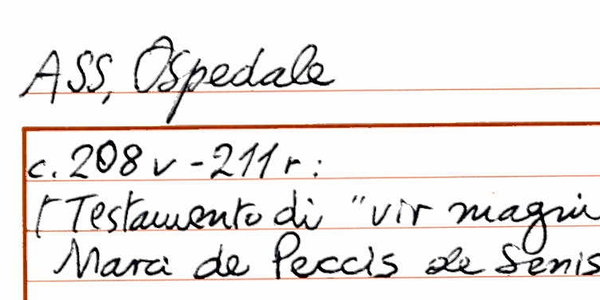 ASS, Ospedale
c. 208 v - 211 r :
[Testamento di "vir magni
Marci de Peccis de Senis